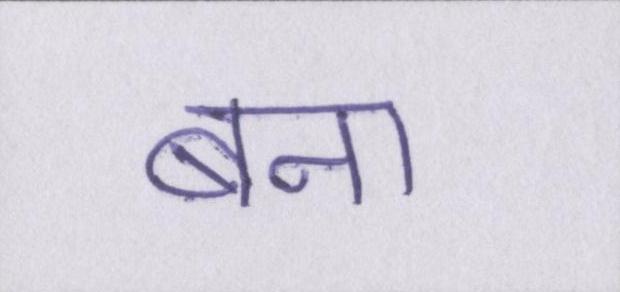 बना